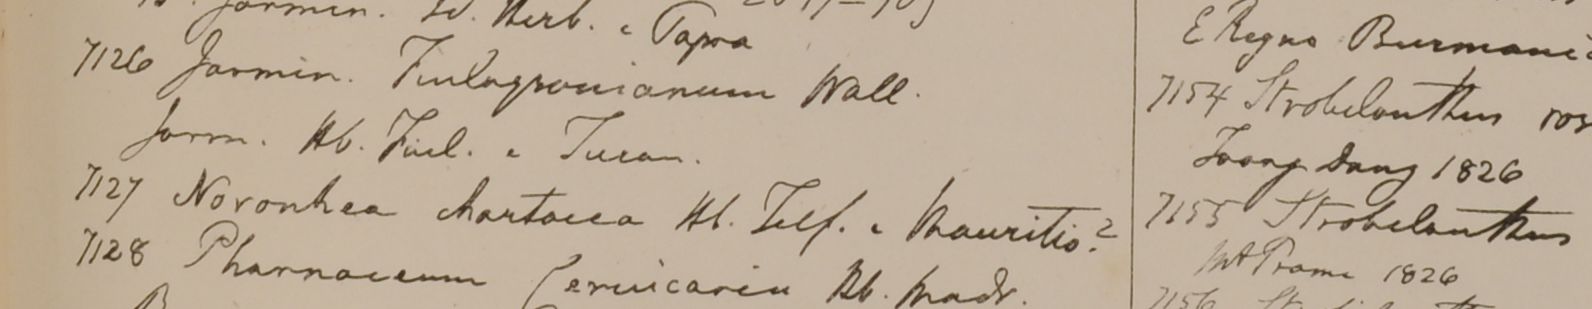 Jasmin. Hb. Herb. e Tapoa
7126 Jasmin. Finlaysonianum Wall.
Jasm. Hb. Finl. e Turan.
7127 Noronhea chartacea Hb. Telf. e Mauritio?
7128 Pharnaceum Cerviearia Hb. Madr.
E Regno Burmanic
7154 Strobilanthus ros
Toong Dong 1826
7155 Strobilanthus
Mt Prome 1826
7156